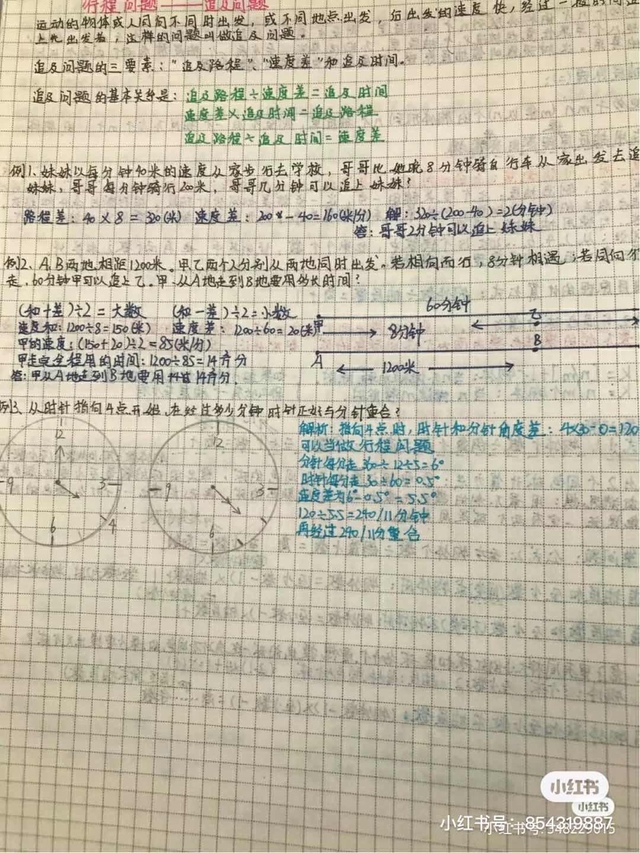 行程问题——追及问题
运动的物体或人同向不同时出发,或不同地点出发,后出发的速度快,经过一段时间追
上先出发者,这样的问题叫做追及问题。
追及问题的三要素:"追及路程"、"速度差"和追及时间。
追及问题的基本关系是:追及路程÷速度差=追及时间
速度差×追及时间=追及路程
追及路程÷追及时间=速度差
例1、妹妹以每分钟40米的速度从家步行去学校,哥哥比她晚8分钟骑自行车从家出发去追
妹妹,哥哥每分钟骑行200米,哥哥几分钟可以追上妹妹?
路程差:40×8=320(米) 速度差:200-40=160(米/分) 解:320÷(200-40)=2(分钟)
答:哥哥2分钟可以追上妹妹
例2、A、B两地相距1200米。甲、乙两个人分别从两地同时出发。若相向而行,8分钟相遇;若同向行
走,60分钟甲可以追上乙。甲从A地走到B地要用多长时间?
(和+差)÷2=大数 (和-差)÷2=小数
速度和:1200÷8=150(米) 速度差:1200÷60=20(米)
甲的速度:(150+20)÷2=85(米/分)
甲走完全程用的时间:1200÷85=14
答:甲从A地走到B地要用14
60分钟
甲
乙
8分钟
A
B
1200米
例3、从时针指向4点开始,在经过多少分钟时针正好与分针重合?
12
9
3
4
6
12
9
3
6
解析:指向4点时,时针和分针角度差:4×30-0=120
可以当做行程问题
分针每分走360÷12÷5=6°
时针每分走30÷60=0.5°
速度差为6°-0.5°=5.5°
120÷5.5=240/11分钟
再经过240/11分重合
小红书
小红书
小红书号:854319887
小红书号:548229015